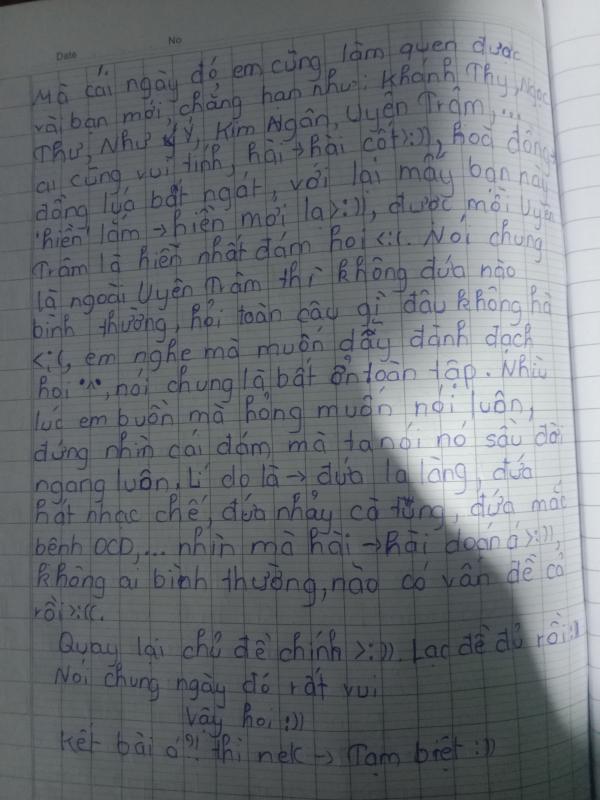 Date No
Mà cái ngày đó em cũng làm quen được
vài bạn mới, chẳng hạn như: Khánh Thy, Ngọc
Thư, Như Ý, Kim Ngân, Uyên Trâm,...
ai cũng vui tính, hài → hài cốt >:)), hoà đồng →
đồng lúa bát ngát, với lại mấy bạn này
"hiền" lắm → hiền mơi lạ >:)), được mỗi Uyên
Trâm là hiền nhất đám hoi <:(. Nói chung
là ngoài Uyên Trâm thì không đứa nào
bình thường, hỏi toàn câu gì đâu không hà
<:(, em nghe mà muốn dẫy đành đạch
hoi "^", nói chung là bất ổn toàn tập. Nhìu
lúc em buồn mà hỏng muốn nói luôn,
đứng nhìn cái đám mà ta nói nó sầu đời
ngang luôn. Lí do là → đứa la làng, đứa
hát nhạc chế, đứa nhảy cà tưng, đứa mắc
bệnh OCD,... nhìn mà hài → hài doán á >:)),
không ai bình thường, nào có vấn đề cả
rồi >:((.
Quay lại chủ đề chính >:)). Lạc đề đủ rồi :))
Nói chung ngày đó rất vui
Vậy hoi :))
Kết bài thì nek → Tạm biệt :))